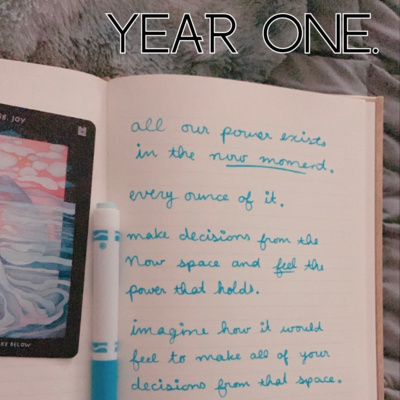 YEAR ONE.
JOY
all our power exists
in the now moment.
every ounce of it.
make decisions from the
now space and feel the
power that holds.
imagine how it would
feel to make all of your
decisions from that space.
BELOW